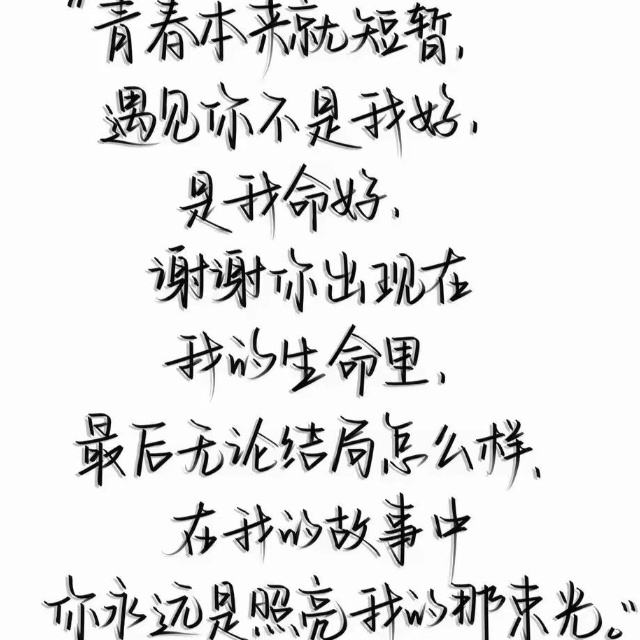 "青春本来就短暂,
遇见你不是我好,
是我命好,
谢谢你出现在
我的生命里,
最后无论结局怎么样,
在我的故事中
你永远是照亮我的那束光。"